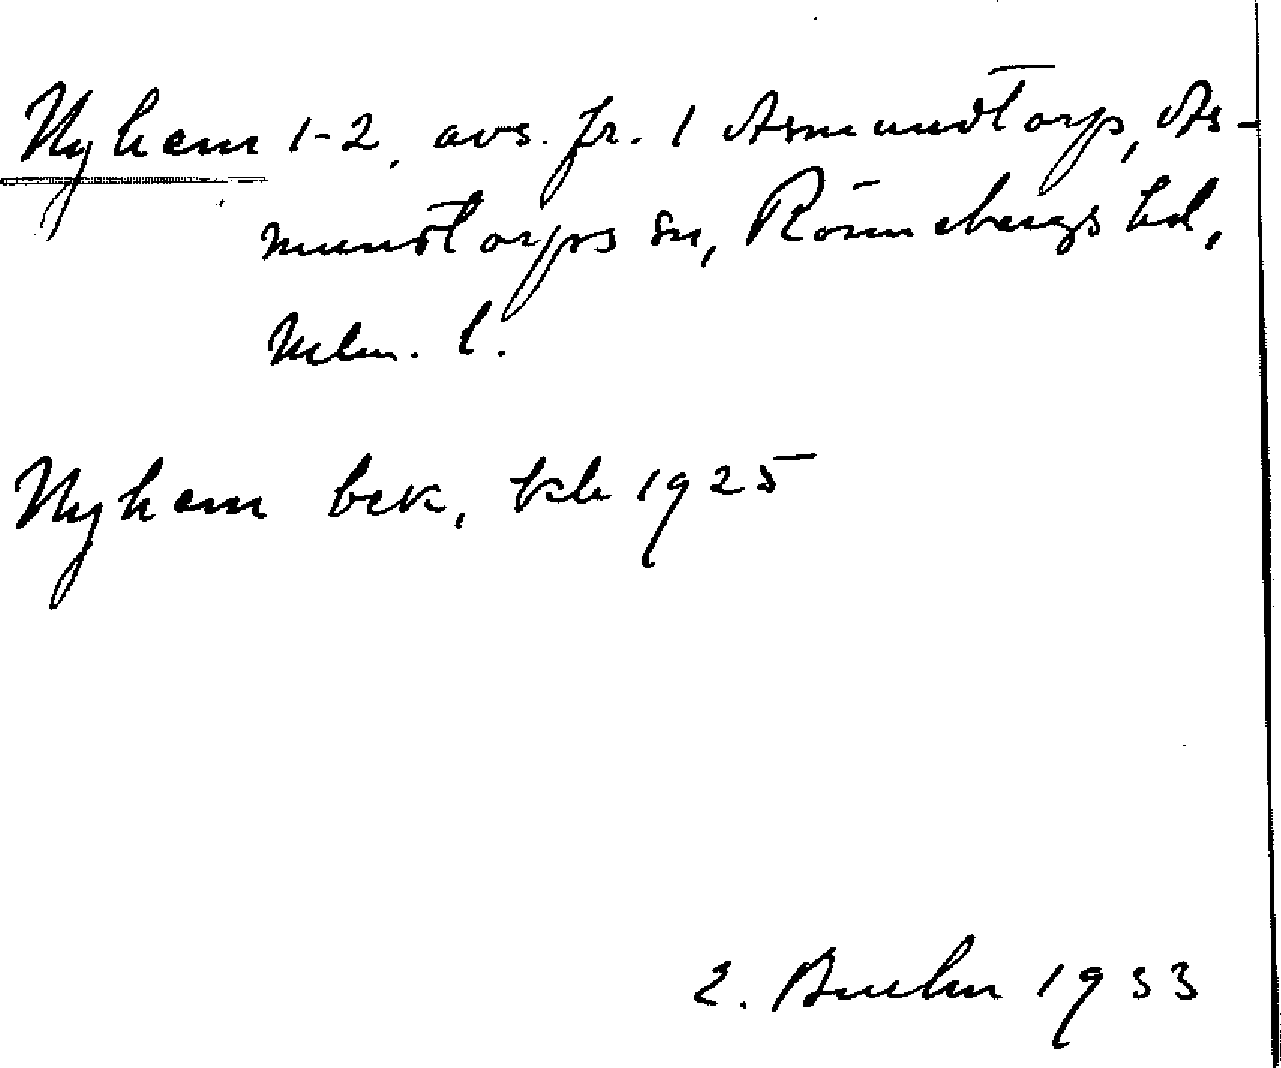 Nyhem 1-2, avs. fr. 1 Asmundtorp, As-
mundtorps sn, Rönnebergs hd,
Mlm. l.
Nyhem bek, kb 1925
1933